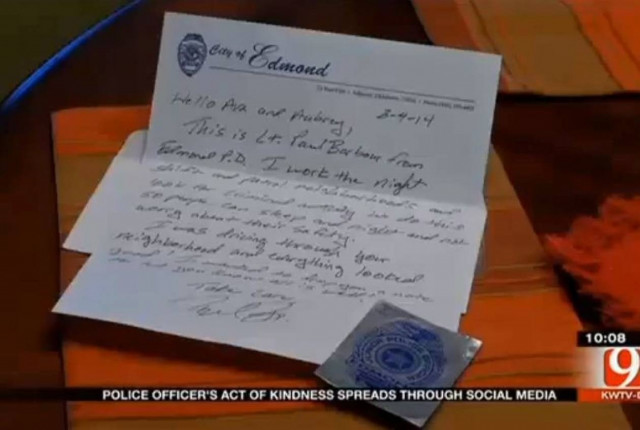 City of Edmond
Hello Ava and Aubrey,
3-4-14
This is Lt. Paul Barbour from
Edmond P.D. I work the night
shift and patrol neighborhoods and
look for criminal activity. We do this
so people can sleep at night and not
worry about their safety.
I was driving through your
neighborhood and everything looked
good! I wanted to
Take care,
10:08
9
KWTV
POLICE OFFICER'S ACT OF KINDNESS SPREADS THROUGH SOCIAL MEDIA